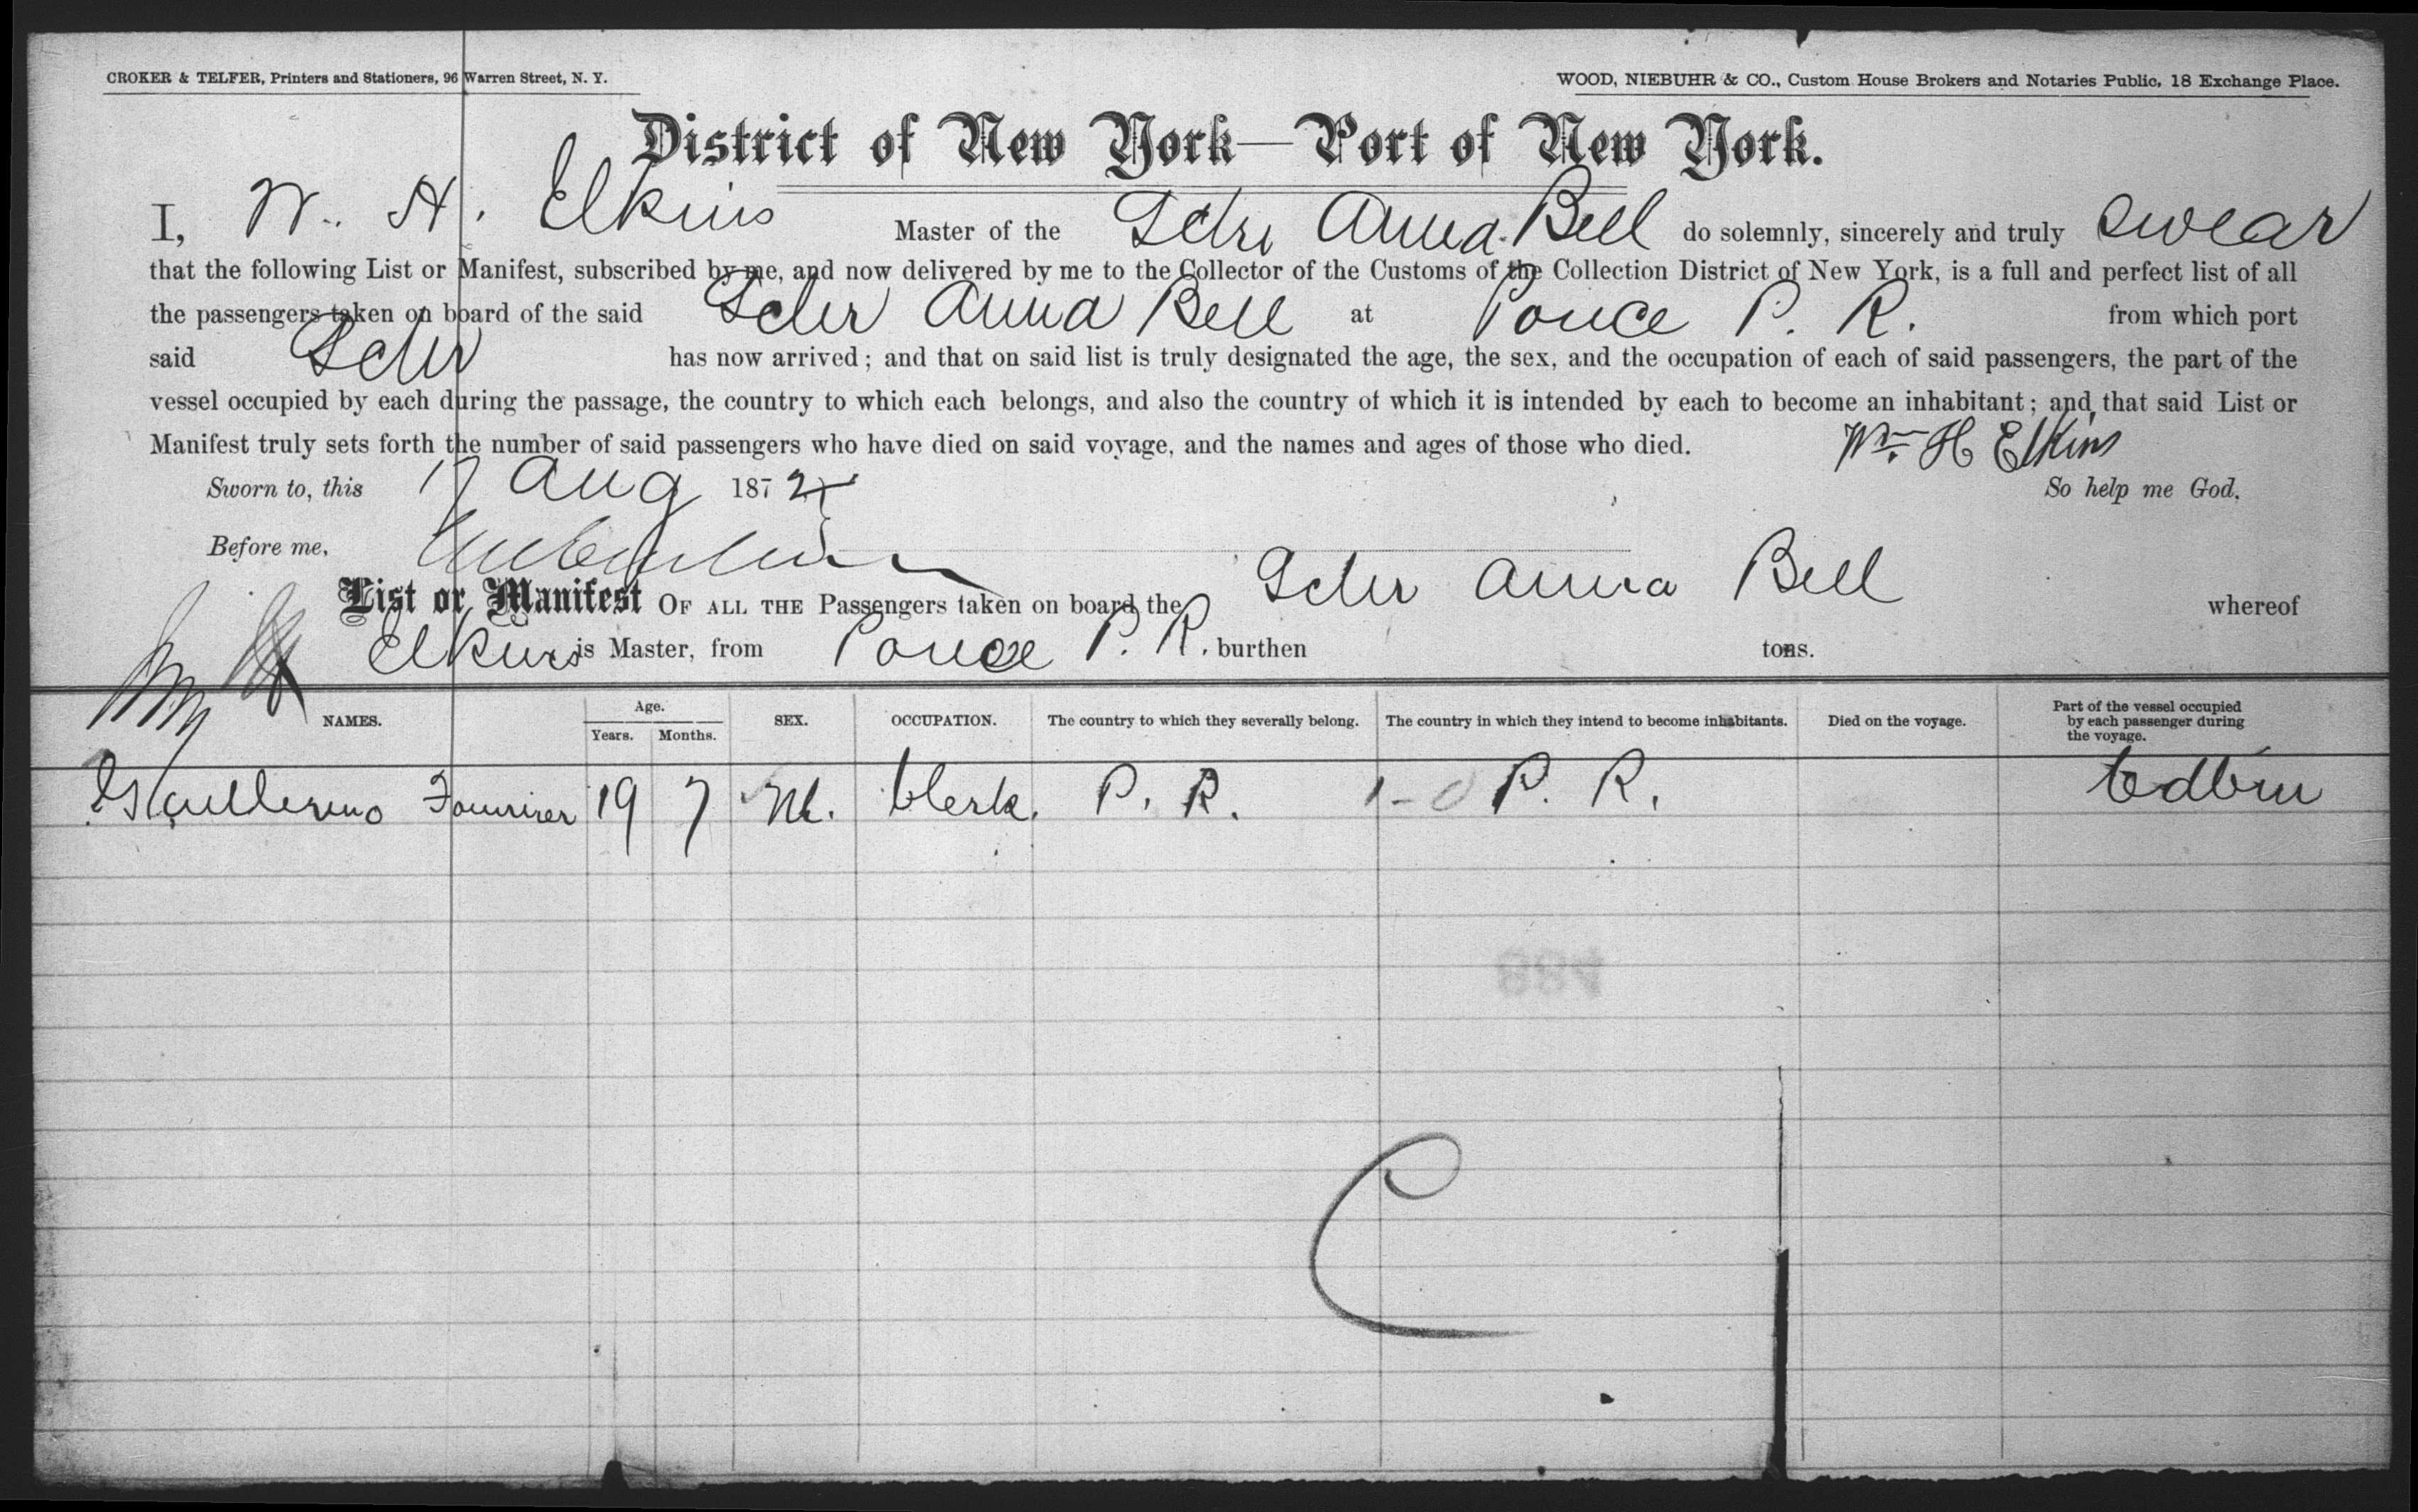 CROKER & TELFER, Printers and Stationers, 96 Warren Street, N. Y.
WOOD, NIEBUHR & CO., Custom House Brokers and Notaries Public, 18 Exchange Place.
District of New York—Port of New York.
I, W. H. Elkins Master of the Schr Anna Bell do solemnly, sincerely and truly swear
that the following List or Manifest, subscribed by me, and now delivered by me to the Collector of the Customs of the Collection District of New York, is a full and perfect list of all
the passengers taken on board of the said Schr Anna Bell at Ponce P. R. from which port
said Schr has now arrived; and that on said list is truly designated the age, the sex, and the occupation of each of said passengers, the part of the
vessel occupied by each during the passage, the country to which each belongs, and also the country of which it is intended by each to become an inhabitant; and that said List or
Manifest truly sets forth the number of said passengers who have died on said voyage, and the names and ages of those who died. Wm. H Elkins
Sworn to, this 17 Aug 187 So help me God.
Before me,
List or Manifest OF ALL THE Passengers taken on board the Schr Anna Bell whereof
Elkins is Master, from Ponce P. R. burthen tons.
NAMES. Age. Years. Months. SEX. OCCUPATION. The country to which they severally belong. The country in which they intend to become inhabitants. Died on the voyage. Part of the vessel occupied by each passenger during the voyage.
Fournier 19 7 M. Clerk. P. R. P. R.